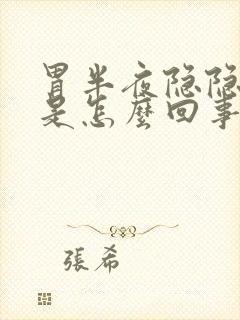 胃半夜隐隐
是怎麽回事
張希